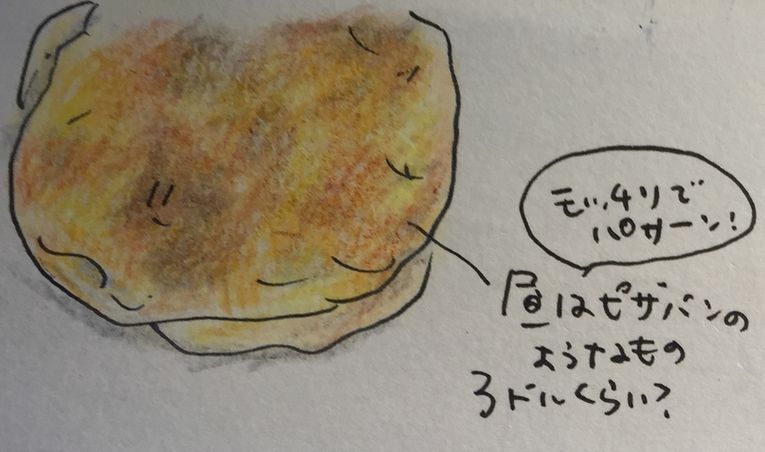 モッチリで
パサーン!
昼はピザパンの
ようなもの
3ドルくらい?